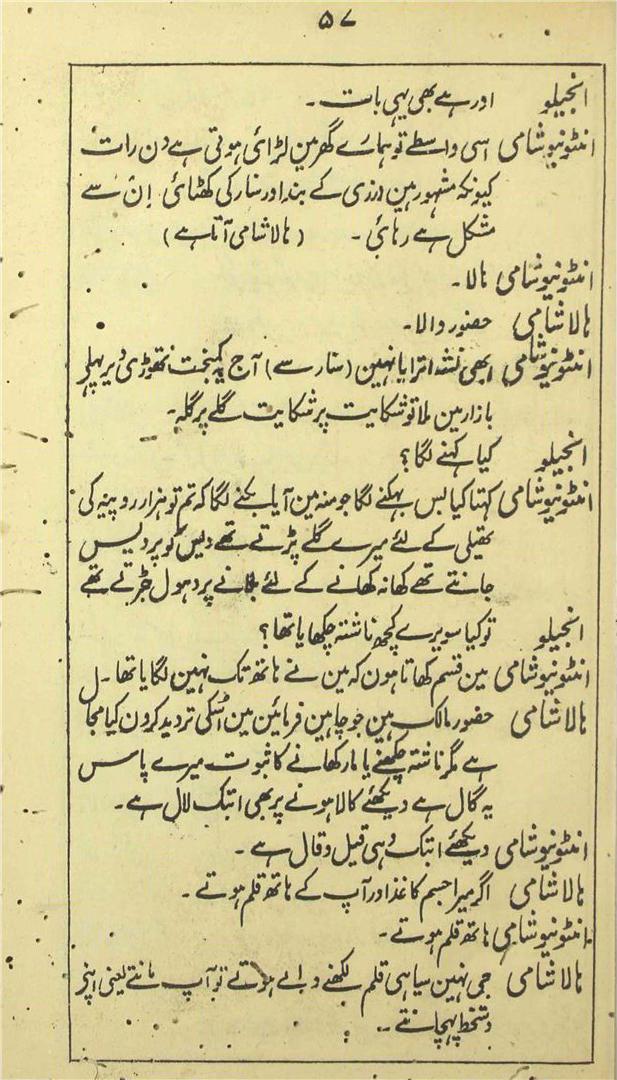 ۵۷
انجیلو اور ہے بھی یہی بات۔
انٹونیوشامی اسی واسطے تو ہمارے گھر مین لڑائی ہوتی ہے دن رات
کیونکہ مشہور ہین درزی کے بند اور سنار کی کھٹائی اِن سے
مشکل ہے رہائی۔ (ہالا شامی آتا ہے)
انٹونیوشامی ہالا۔
ہالاشامی حضور والا۔
انٹونیوشامی ابھی نشہ اترا یا نہین (سنار سے) آج یہ کمبخت تھوڑی دیر پہلے
بازار مین ملا تو شکایت پر شکایت گلے پر گلہ۔
انجیلو کیا کہنے لگا؟
انٹونیوشامی کہتا کیا بس بہکنے لگا جو منہ مین آیا بکنے لگا کہ تم تو ہزار روپیہ کی
تھیلی کے لئے میرے گلے پڑتے تھے دیس کو پردیس
جانتے تھے کھانہ کھانے کے لئے بلانے پر دہول جڑتے تھے
انجیلو تو کیا سویرے کچھ ناشتہ چکھایا تھا؟
انٹونیوشامی مین قسم کھاتا ہون کہ مین نے ہاتھ تک نہین لگایا تھا۔
ہالاشامی حضور مالک ہین جو چاہین فرمائین مین اسکی تردید کرون کیا مجال
ہے مگر ناشتہ چکھنے یا مار کھانے کا ثبوت میرے پاس
یہ گال ہے دیکھئے کالا ہونے پر بھی ابتک لال ہے۔
انٹونیوشامی دیکھئے ابتک وہی قیل و قال ہے۔
ہالاشامی اگر میرا جسم کاغذ اور آپ کے ہاتھ قلم ہوتے۔
انٹونیوشامی ہاتھ قلم ہوتے۔
ہالاشامی جی نہین سیاہی قلم لکھنے والے ہوتے تو آپ مانتے یعنی اپنے
دستخط پہچانتے۔